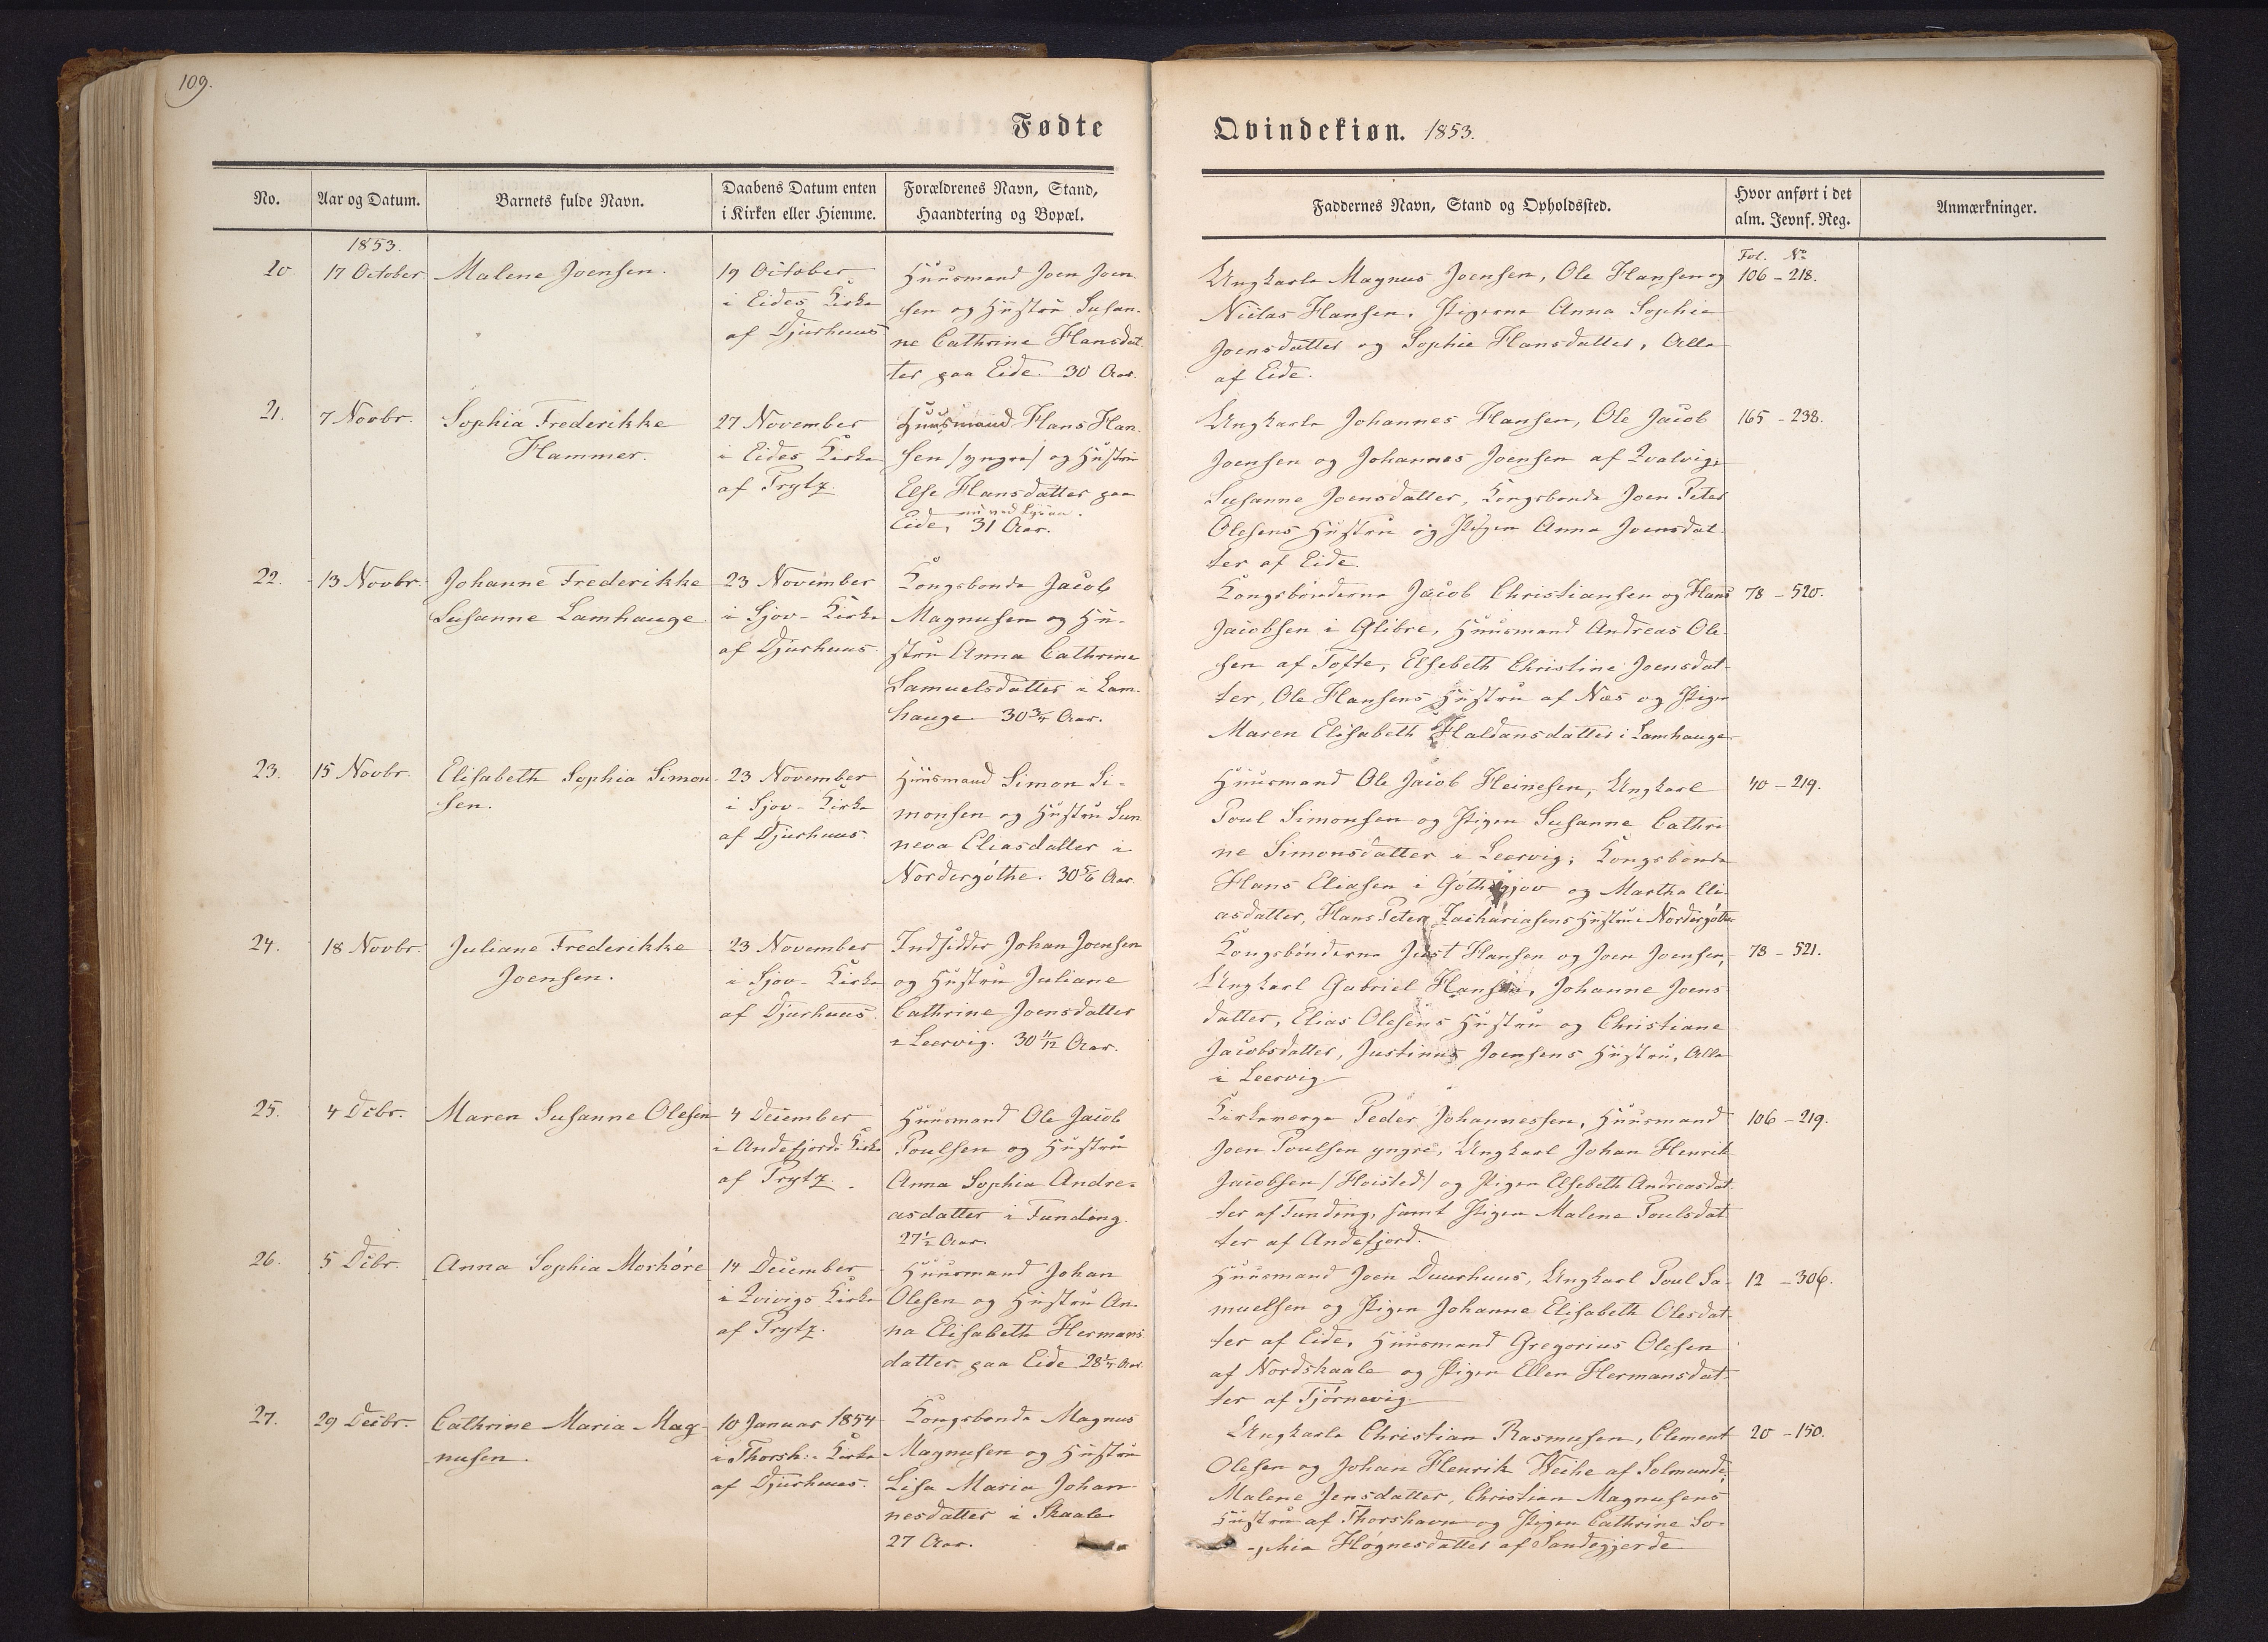 109.
Fødte
Qvindekiøn. 1853.
No.
Aar og Datum.
Barnets fulde Navn.
Daabens Datum enten
i Kirken eller Hiemme.
Forældrenes Navn, Stand,
Haandtering og Bopæl.
Faddernes Navn, Stand og Opholdssted.
Hvor anført i det
alm. Jevnf. Reg.
Anmærkninger.
1853.
Fol. No
20.
17 October.
Malene Joensen.
19 October
i Eides Kirke
af Djurhuus
Huusmand Joen Joen-
sen og Hustru Susan-
ne Cathrine Hansdat-
ter paa Eide. 30 Aar.
Ungkarle Magnus Joensen, Ole Hansen og
Niclas Hansen, Pigerne Anna Sophie
Joensdatter og Sophie Hansdatter, Alle
af Eide.
106 - 218.
21.
7 Novbr.
Sophia Frederikke
Hammer.
27 November
i Eides Kirke
af Prytz.
Huusmand Hans Han-
sen /yngre/ og Hustru
Else Hansdatter paa
Eide, 31 Aar.
Ungkarle Johannes Hansen, Ole Jacob
Joensen og Johannes Joensen af Qvalvig,
Susanne Joensdatter, Kongsbonde Joen Peter
Olesens Hustru og Pigen Anna Joensdat-
ter af Eide.
165 - 238.
22.
13 Novbr.
Johanne Frederikke
Susanne Lamhauge.
23 November
i Sjov-Kirke
af Djurhuus.
Kongsbonde Jacob
Magnusen og Hu-
stru Anna Cathrine
Samuelsdatter i Lam-
hauge 30 3/4 Aar.
Kongsbønderne Jacob Christiansen og Hans
Jacobsen i Glibre, Huusmand Andreas Ole-
sen af Tofte, Elsebeth Christine Joensdat-
ter, Ole Hansens Hustru af Næs og Pigen
Maren Elisabeth Haldansdatter i Lamhauge
78 - 520.
23.
15 Novbr.
Elisabeth Sophia Simon-
sen.
23 November
i Sjov-Kirke
af Djurhuus.
Huusmand Simon Si-
monsen og Hustru Sun-
neva Eliasdatter i
Nordergøthe. 30 5/6 Aar.
Huusmand Ole Jacob Heinesen, Ungkarl
Poul Simonsen og Pigen Susanne Cathri-
ne Simonsdatter i Leervig; Kongsbonde
Hans Eliasen i Gøthegjov og Martha Eli-
asdatter, Hans Peter Zachariasens Hustru i Nordergøthe
40 - 219.
24.
18 Novbr.
Juliane Frederikke
Joensen.
23 November
i Sjov-Kirke
af Djurhuus.
Indsidder Johan Joensen
og Hustru Juliane
Cathrine Joensdatter
i Leervig. 30 11/12 Aar.
Kongsbønderne Just Hansen og Joen Joensen,
Ungkarl Gabriel Hansen, Johanne Joens-
datter, Elias Olesens Hustru og Christiane
Jacobsdatter, Justinus Joensens Hustru, Alle
i Leervig
78 - 521.
25.
4 Dcbr.
Maren Susanne Olesen
4 December
i Andefjords Kirke
af Prytz.
Huusmand Ole Jacob
Poulsen og Hustru
Anna Sophia Andre-
asdatter i Funding.
27 1/2 Aar.
Kirkeverge Peder Johannessen, Huusmand
Joen Poulsen yngre, Ungkarl Johan Henrik
Jacobsen /Hoisted/ og Pigen Elsebeth Andreasdat-
ter af Funding, samt Pigen Malene Poulsdat-
ter af Andefjord.
106 - 219.
26.
5 Dcbr.
Anna Sophia Morhøre
14 December
i Qvivigs Kirke
af Prytz.
Huusmand Johan
Olesen og Hustru An-
na Elisabeth Hermans-
datter paa Eide 28 1/4 Aar.
Huusmand Joen Duurhuus, Ungkarl Poul Sa-
muelsen og Pigen Johanne Elisabeth Olesdat-
ter af Eide, Huusmand Gregorius Olesen
af Nordskaale og Pigen Ellen Hermansdat-
ter af Tjørnevig
12 - 306.
27.
29 Decbr.
Cathrine Maria Mag-
nusen.
10 Januar 1854
i Thorsh: Kirke
af Djurhuus.
Kongsbonde Magnus
Magnusen og Hustru
Lisa Maria Johan-
nesdatter i Skaale
27 Aar.
Ungkarle Christian Rasmusen, Clement
Olesen og Johan Henrik Weihe af Solmunde,
Malene Jensdatter, Christian Magnusens
Hustru af Thorshavn og Pigen Cathrine So-
phia Høgnesdatter af Sandegjerde
20 - 150.